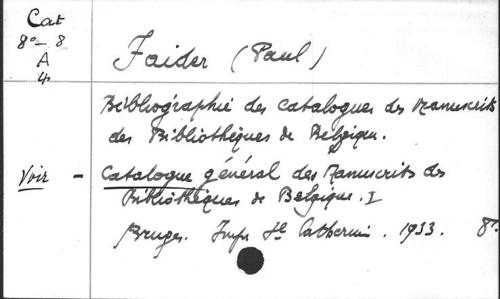 Cat
8°-8
A
4
Faider (Paul)
Bibliographie des Catalogues des Manuscrits
des Bibliothèques de Belgique.
Voir - Catalogue général des Manuscrits des
Bibliothèques de Belgique. I
Bruges. Impr. Ste Catherine. 1933. 8°.